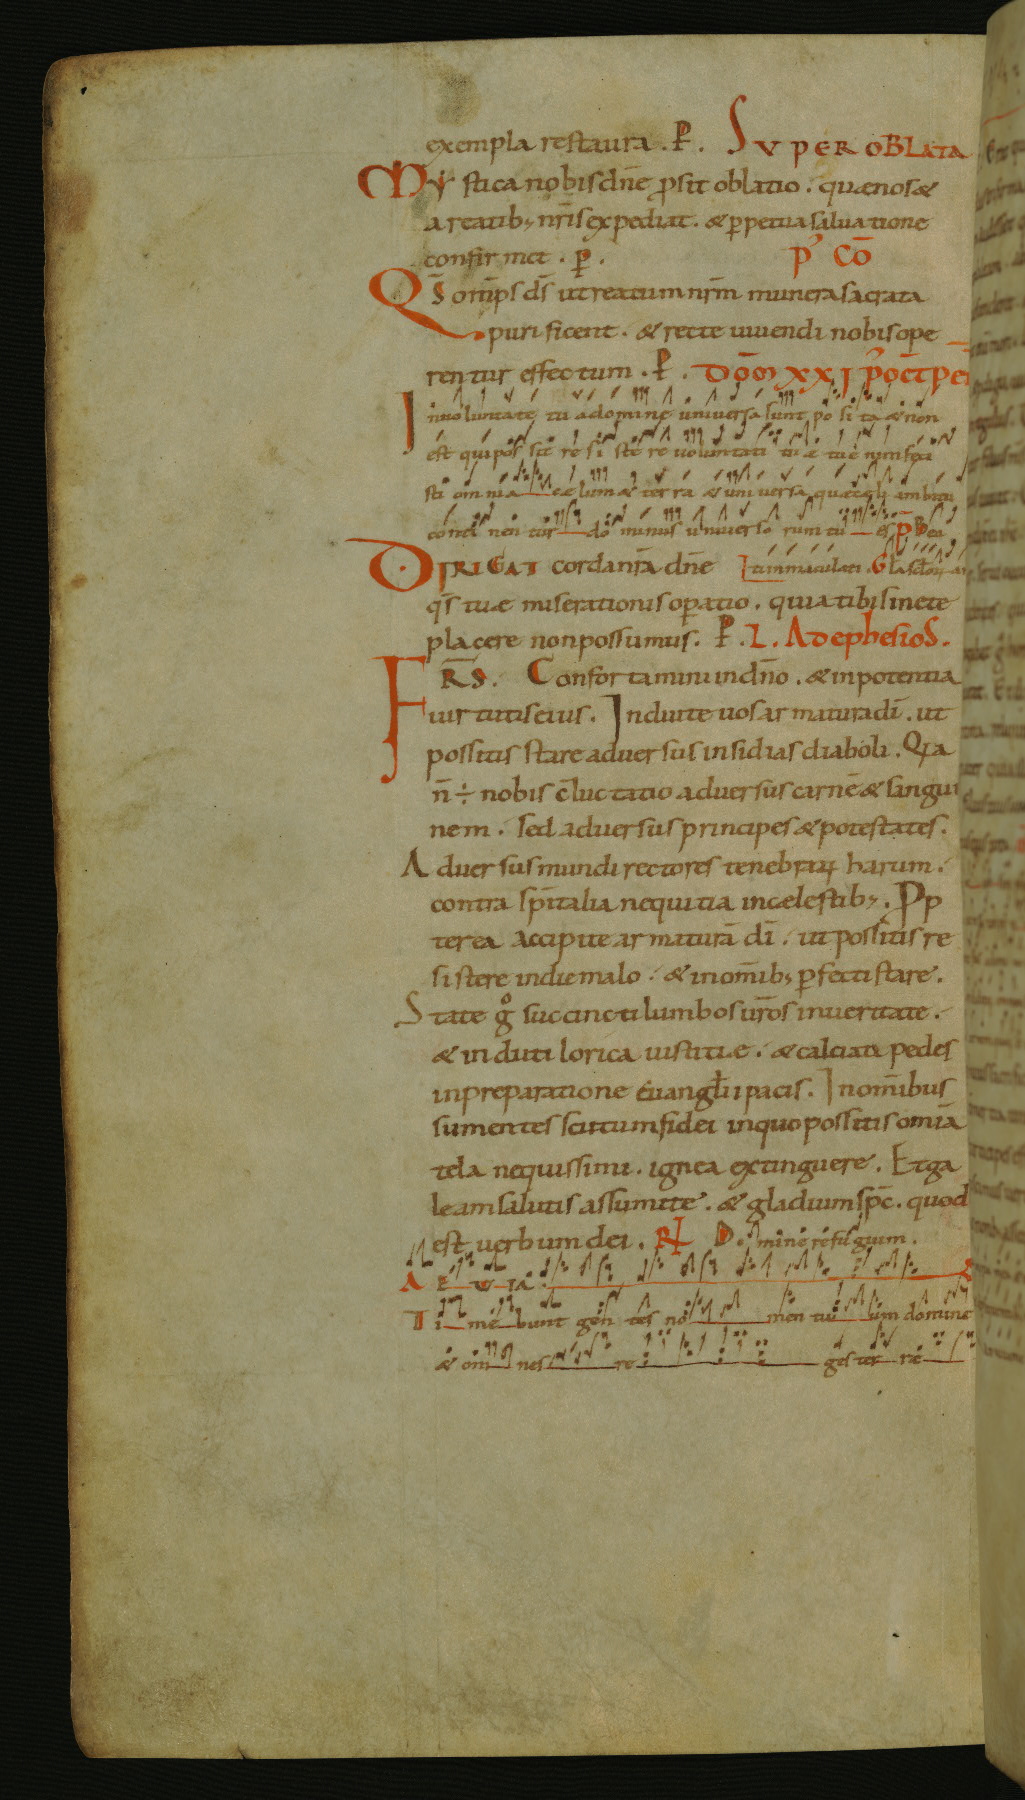 exempla restaura . P . SUPER OBLATA
Mystica nobis dn̄e p̄sit oblatio . quae nos &
a reatib; nr̄is expediat . & p̄petua saluatione
confirmet . P̄ . P' CŌ
Qs̄ om̄ps ds̄ ut reatum nr̄m munera sacrata
purificent . & recte uiuendi nobis ope
rentur effectum . P . DOM̄ XXI P' OCT̄ PEN
In uoluntate tua domine uniuersa sunt posita & non
est qui possit resistere uoluntati tuae tu enim feci
sti omnia caelum & terram & uniuersa quae caeli ambitu
continentur dominus uniuersorum tu es P̄ Bea
DIRIGAT corda nr̄a dn̄e ti inmaculati . Gla
qs̄ tuae miserationis op̄atio . quia tibi sine te
placere non possumus . P . L . Ad ephesioS .
FRS̄ . Confortamini in dn̄o . & in potentia
uirtutis eius . Induite uos armatura dī . ut
possitis stare aduersus insidias diaboli . Qia
n̄ ÷ nobis c̄luctatio aduersus carnē & sangui
nem . sed aduersus principes & potestates .
Aduersus mundi rectores tenebrarꝝ harum .
contra sp̄italia nequitia in caelestib; . Pp
terea accipite armaturā dī . ut possitis re
sistere in die malo . & in om̄ib; p̄fecti stare .
State g̊ succincti lumbos ur̄os in ueritate .
& induti lorica iustitiae . & calciati pedes
in preparatione euanglii pacis . In om̄ibus
sumentes scutum fidei in quo possitis om̄ia
tela nequissimi . ignea extinguere . Et ga
leam salutis assumite . & gladium sp̄c . quod
est uerbum dei . R̸ Domine refugium .
AEUIA
Timebunt gentes nomen tuum domine
& omnes reges terrae